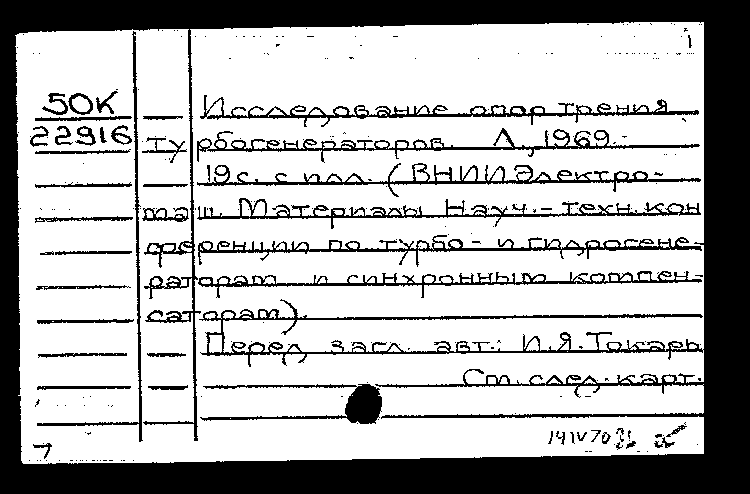 1
50К Исследование опор трения
22916 турбогенераторов. Л., 1969.-
19с. с илл. (ВНИИЭлектро-
маш. Материалы Науч.-техн.кон
ференции по турбо- и гидрогене-
раторам и синхронным компен-
саторам).
Перед загл. авт.: И.Я.Токарь
См.след.карт.
7
14IV70